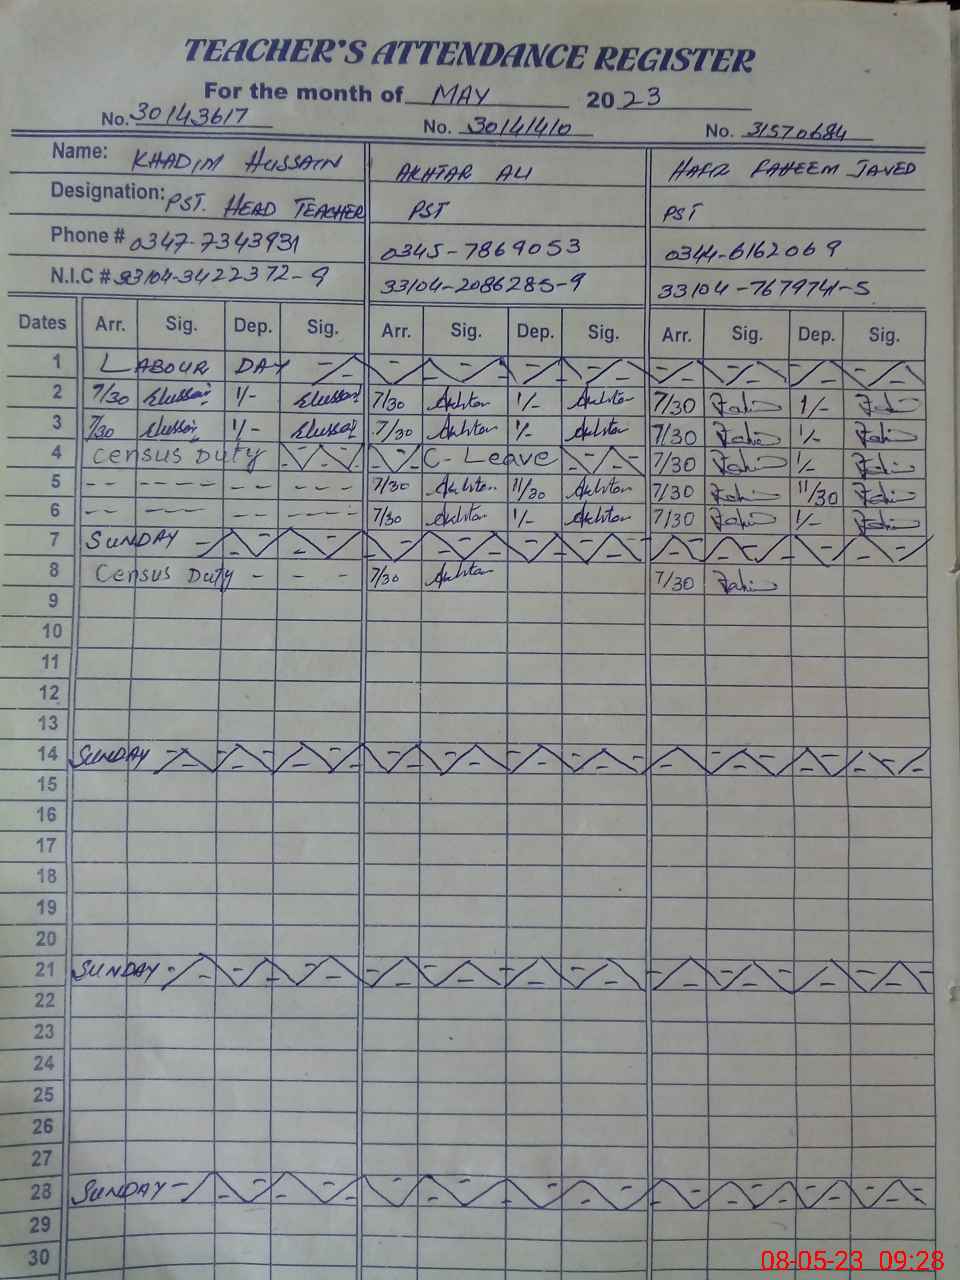 TEACHER'S ATTENDANCE REGISTER
For the month of MAY 2023
No. 30143617 No. 30141410 No. 31570684
Name: KHADIM HUSSAIN AKHTAR ALI HAFIZ FAHEEM JAVED
Designation: PST. HEAD TEACHER PST PST
Phone # 0347-7343931 0345-7869053 0344-6162069
N.I.C # 33104-3422372-9 33104-2086285-9 33104-7679741-5
Dates Arr. Sig. Dep. Sig. Arr. Sig. Dep. Sig. Arr. Sig. Dep. Sig.
1 LABOUR DAY
2 7/30 1/- 7/30 Akhtar 1/- Akhtar 7/30 1/-
3 7/30 1/- 7/30 Akhtar 1/- Akhtar 7/30 1/-
4 Census Duty C-Leave 7/30 1/-
5 7/30 Akhtar 11/30 Akhtar 7/30 11/30
6 7/30 Akhtar 1/- Akhtar 7/30 1/-
7 SUNDAY
8 Census Duty 7/30 Akhtar 7/30
9
10
11
12
13
14 SUNDAY
15
16
17
18
19
20
21 SUNDAY
22
23
24
25
26
27
28 SUNDAY
29
30
08-05-23 09:28